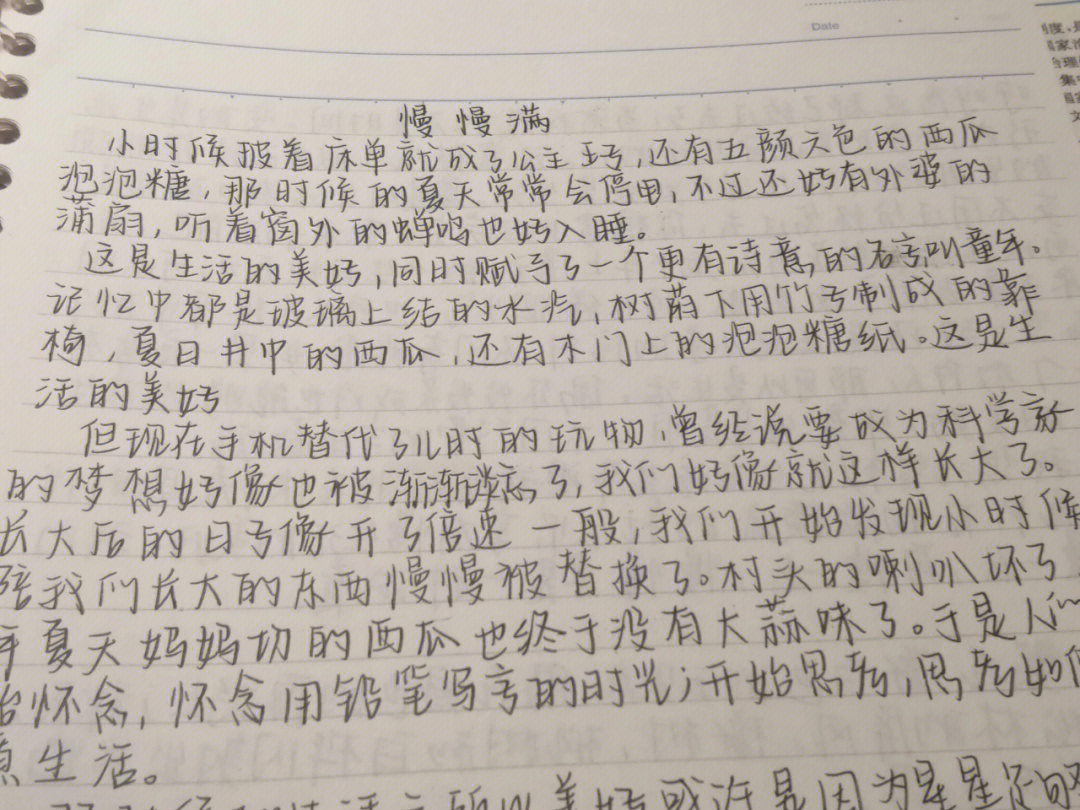 Date
慢慢满
小时候披着床单就成了公主王子，还有五颜六色的西瓜
泡泡糖，那时候的夏天常常会停电，不过还好有外婆的
蒲扇，听着窗外的蝉鸣也好入睡。
这是生活的美好，同时赋予了一个更有诗意的名字叫童年。
记忆中都是玻璃上结的水汽，树荫下用竹子制成的靠
椅，夏日井中的西瓜，还有木门上的泡泡糖纸。这是生
活的美好
但现在手机替代了儿时的玩物，曾经说要成为科学家
的梦想好像也被渐渐淡忘了，我们好像就这样长大了。
长大后的日子像开了倍速一般，我们开始发现小时候
陪我们长大的东西慢慢被替换了。村头的喇叭坏了
年夏天妈妈切的西瓜也终于没有大蒜味了。于是人们
始怀念，怀念用铅笔写字的时光；开始思考，思考如何
意生活。
所以美好或许是因为星星
度，是
国家治
治理
集